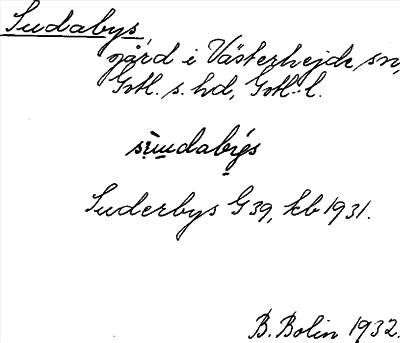 Sudabys
gård i Västerhejde sn,
Gotl. s. hd, Gotl. l.
Suderbys G 39, kb 1931.
B. Bolin 1932.